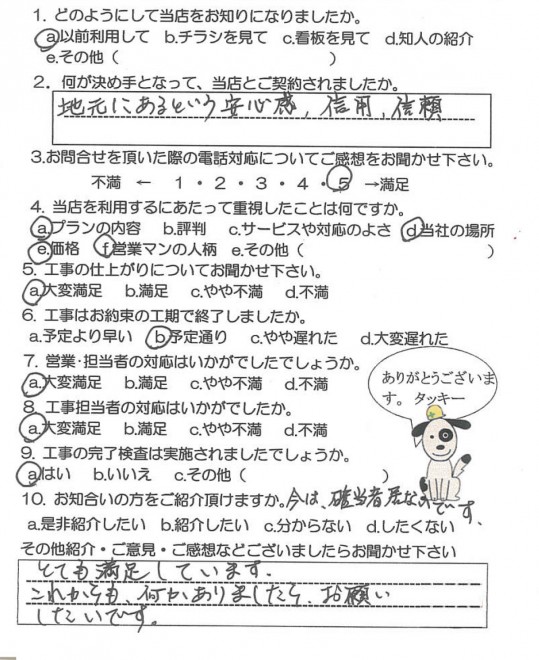 1. どのようにして当店をお知りになりましたか。
a以前利用して b.チラシを見て c.看板を見て d.知人の紹介
e.その他（ ）
2. 何が決め手となって、当店とご契約されましたか。
地元にあるという安心感, 信用, 信頼
3.お問合せを頂いた際の電話対応についてご感想をお聞かせ下さい。
不満 ← 1・2・3・4・5 →満足
4. 当店を利用するにあたって重視したことは何ですか。
a.プランの内容 b.評判 c.サービスや対応のよさ d当社の場所
e.価格 f営業マンの人柄 e.その他（ ）
5. 工事の仕上がりについてお聞かせ下さい。
a大変満足 b.満足 c.やや不満 d.不満
6. 工事はお約束の工期で終了しましたか。
a.予定より早い b予定通り c.やや遅れた d.大変遅れた
7. 営業・担当者の対応はいかがでしたでしょうか。
a.大変満足 b.満足 c.やや不満 d.不満
ありがとうございま
す。 タッキー
8. 工事担当者の対応はいかがでしたか。
a.大変満足 b.満足 c.やや不満 d.不満
9. 工事の完了検査は実施されましたでしょうか。
aはい b.いいえ c.その他（ ）
10. お知合いの方をご紹介頂けますか。今は、 当者居な です、
a.是非紹介したい b.紹介したい c.分からない d.したくない
その他紹介・ご意見・ご感想などございましたらお聞かせ下さい
とても満足しています.
これからも、何かありましたら、お願い
したいです。